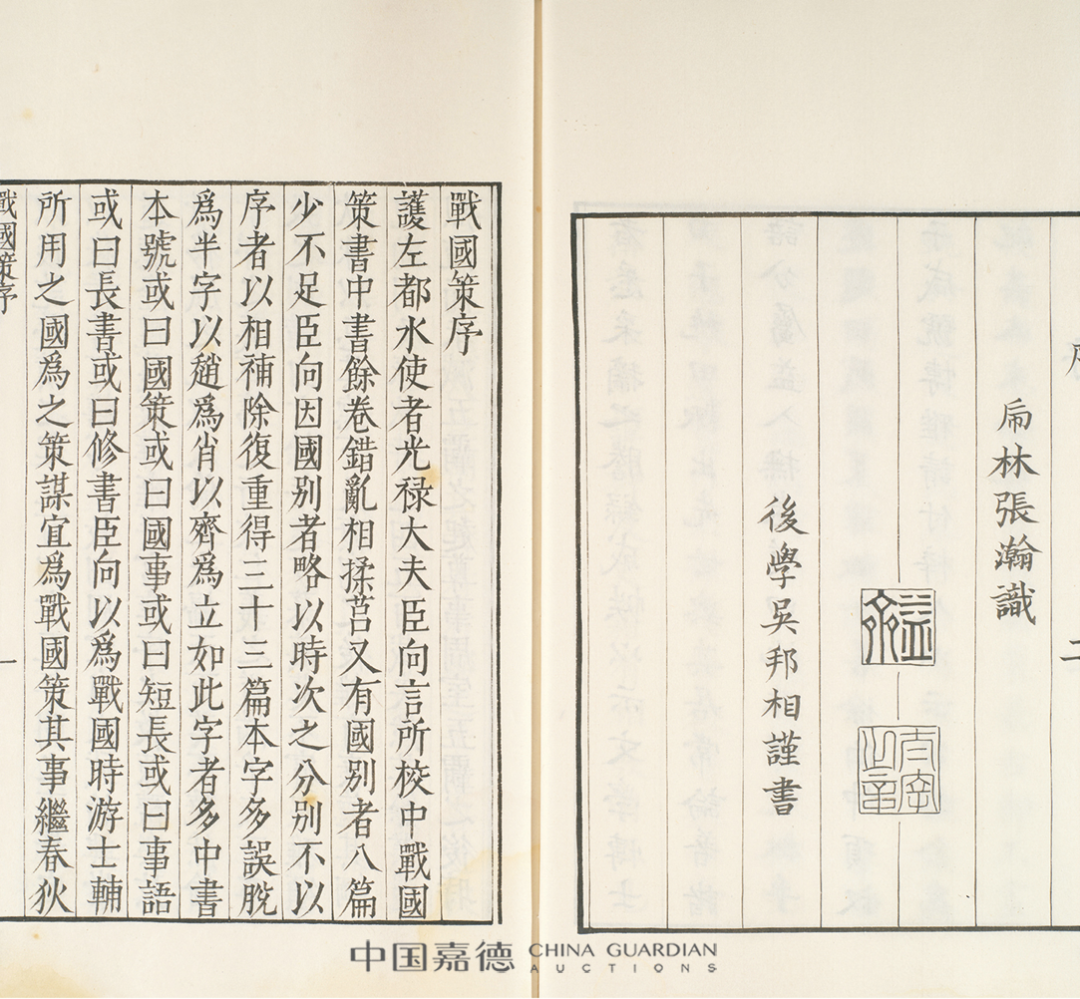 序
二
乕林張瀚識
太宰之章
後學吳邦相謹書
戰國策序
護左都水使者光禄大夫臣向言所校中戰國
策書中書餘卷錯亂相揉莒又有國别者八篇
少不足臣向因國别者略以時次之分别不以
序者以相補除復重得三十三篇本字多誤脫
爲半字以趙爲肖以齊爲立如此字者多中書
本號或曰國策或曰國事或曰短長或曰事語
或曰長書或曰修書臣向以爲戰國時游士輔
所用之國爲之策謀宜爲戰國策其事繼春狄
戰國策序
一
中国嘉德 CHINA GUARDIAN
AUCTIONS